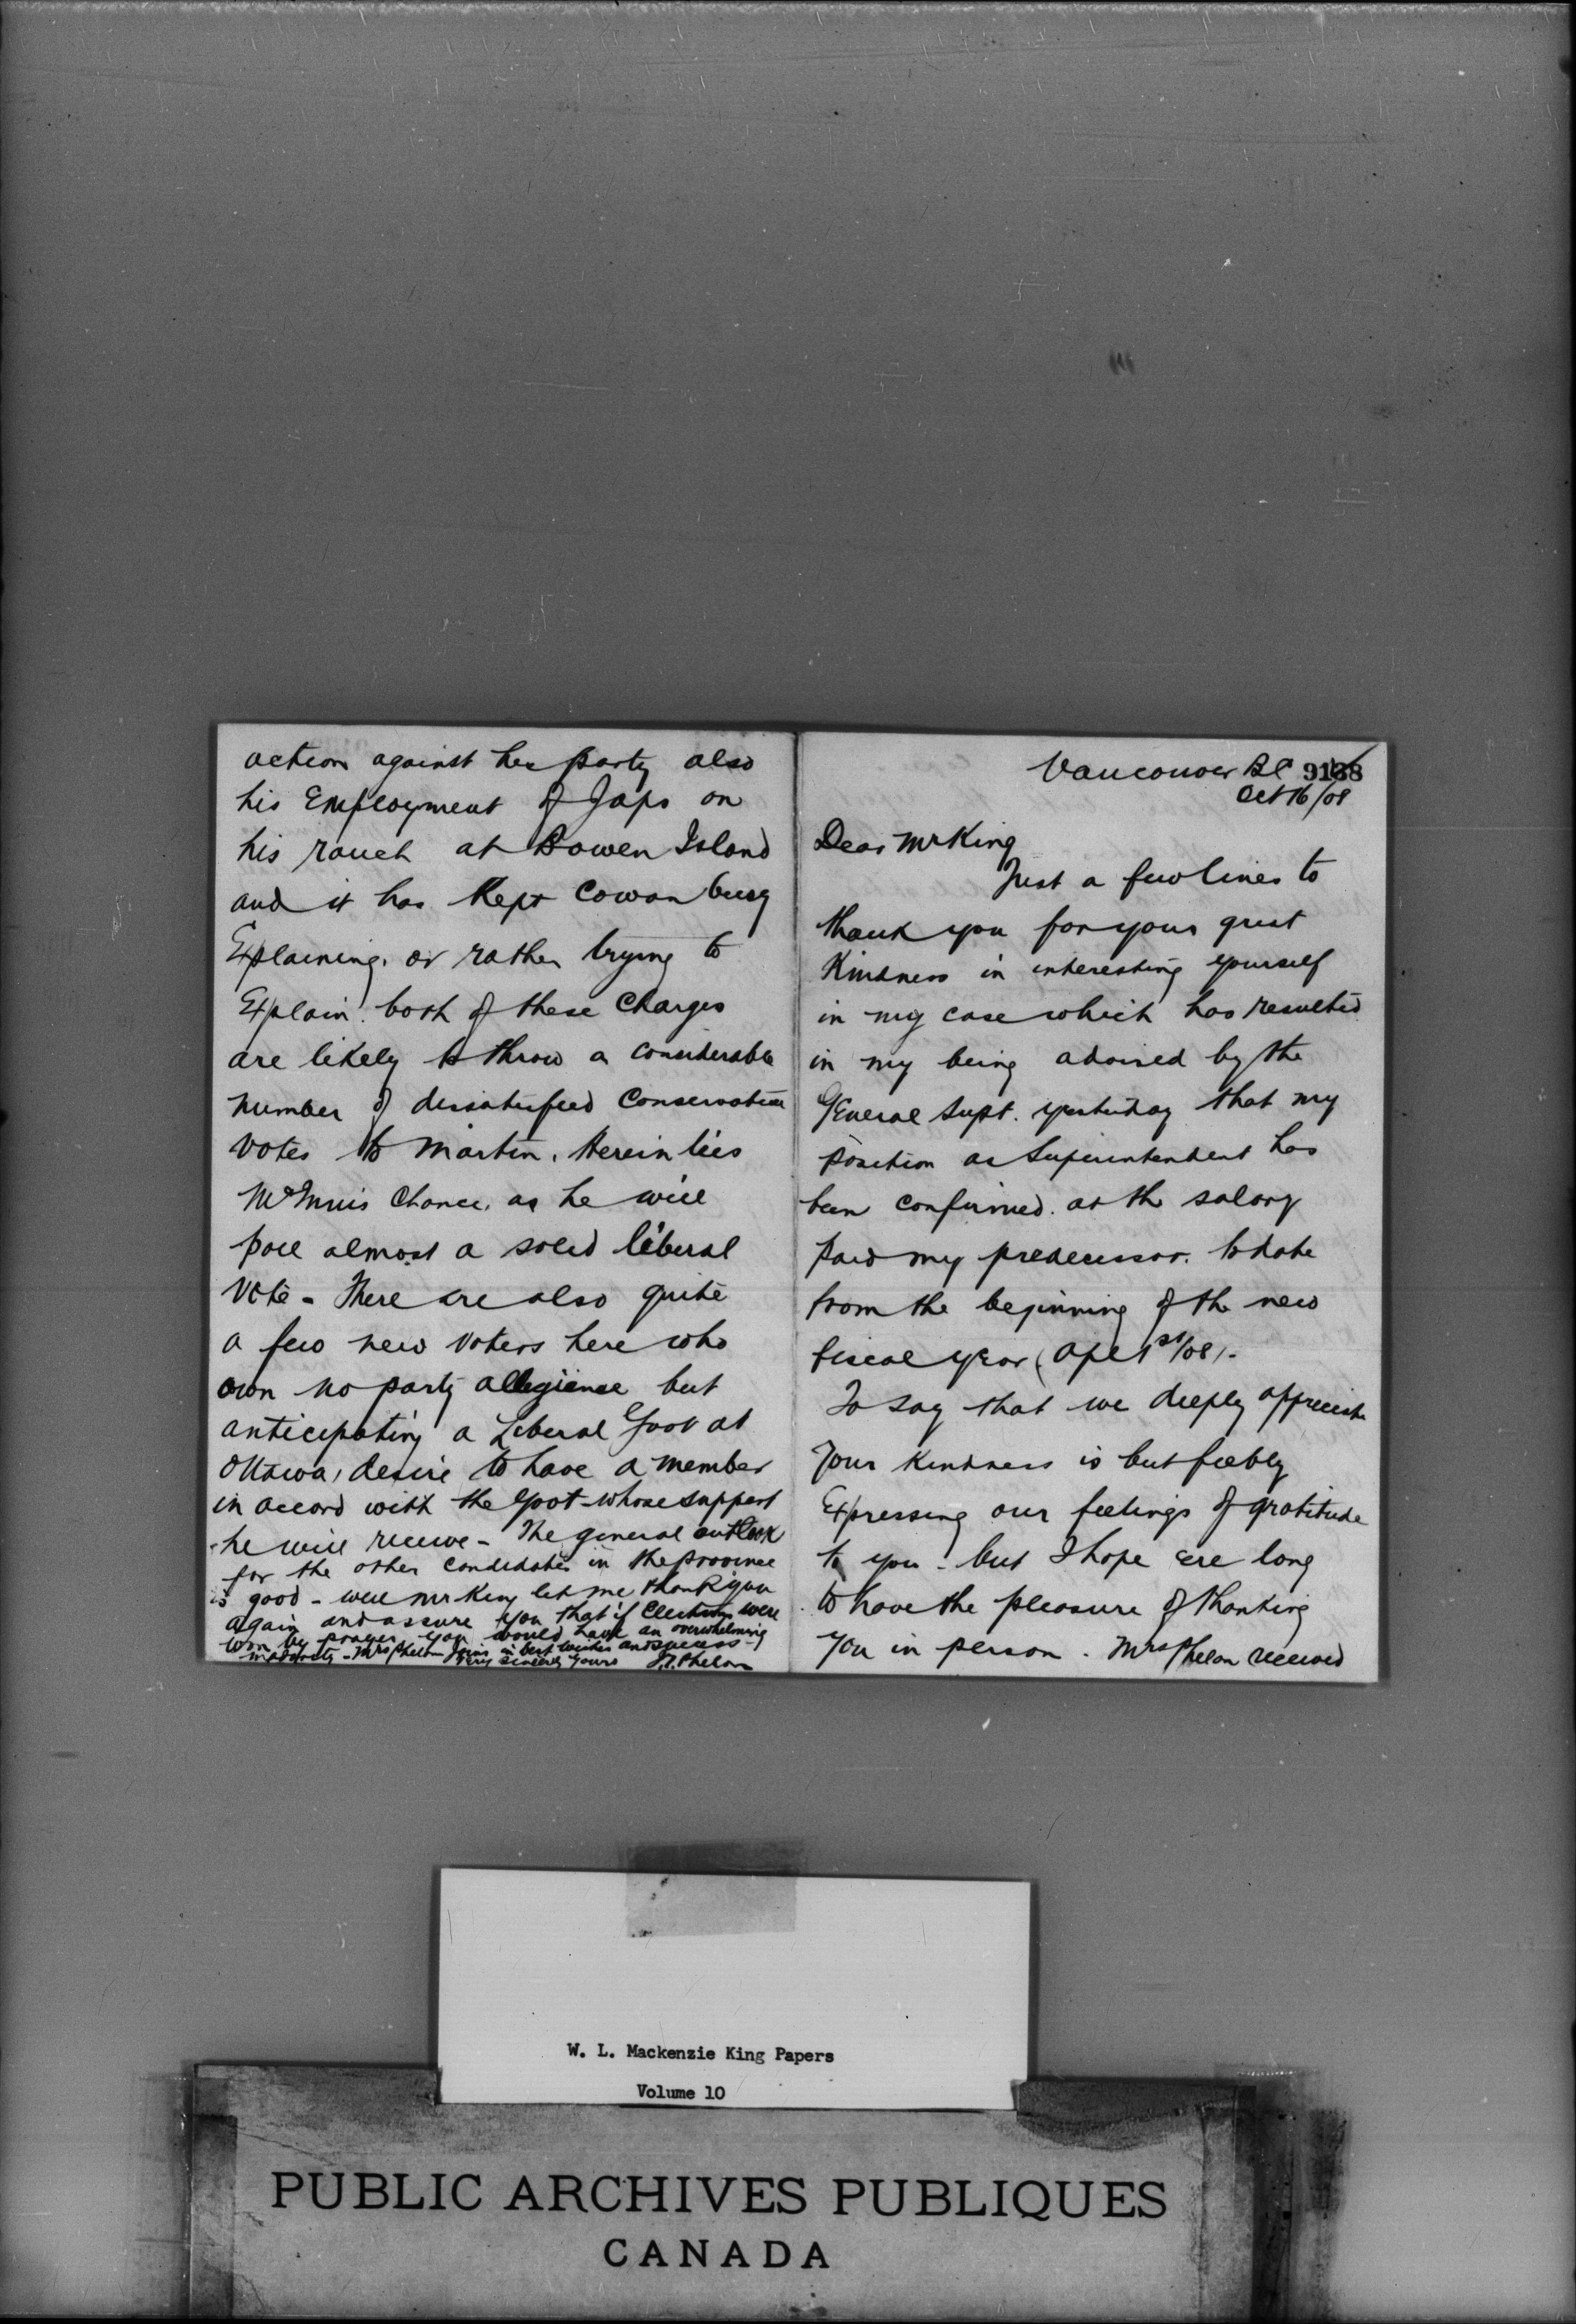 action against her party also
his Employment of Japs on
his ranch at Bowen Island
and it has Kept Cowan busy
Explaining, or rather trying to
Explain. both of these Charges
are likely to throw a considerable
number of dissatisfied Conservative
votes to Martin. Herein lies
McInnis Chance. as he will
poll almost a solid liberal
Vote - There are also quite
a few new voters here who
own no party allegience but
anticipating a Liberal Govt at
Ottawa, desire to have a member
in accord with the Govt - whose support
he will receive - The general outlook
for the other candidates in the province
is good - well Mr King let me thank you
again and assure you that if Elections were
won by prayer you would have an overwhelming
majority - Mrs Phelan joins in best wishes and success -
Very sincerely yours J.T. Phelan
Vancouver BC 9138
Oct 16/08
Dear Mr King
Just a few lines to
thank you for your great
Kindness in interesting yourself
in my case which has resulted
in my being advised by the
General Supt. yesterday that my
position as Superintendent has
been confirmed. at the salary
paid my predecessor. to date
from the beginning of the new
fiscal year (Apl 1st/08).
To say that we deeply appreciate
your kindness is but feebly
Expressing our feelings of gratitude
to you - but I hope ere long
to have the pleasure of thanking
you in person. Mrs Phelan received
W. L. Mackenzie King Papers
Volume 10
PUBLIC ARCHIVES PUBLIQUES
CANADA